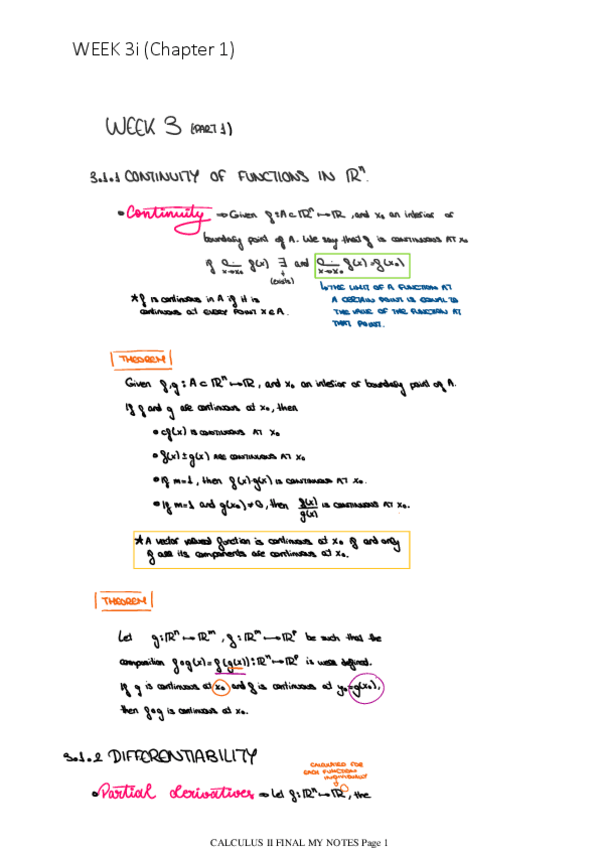 WEEK 3i (Chapter 1)
WEEK 3 (PART 1)
3.1.1 CONTINUITY OF FUNCTIONS IN ℝⁿ.
• Continuity → Given f: A ⊂ ℝⁿ → ℝ, and x₀ an interior or
boundary point of A. We say that f is CONTINUOUS AT x₀
if lim x→x₀ f(x) ∃ and lim x→x₀ f(x) = f(x₀)
(exists)
↳ THE LIMIT OF A FUNCTION AT
A CERTAIN POINT IS EQUAL TO
THE VALUE OF THE FUNCTION AT
THAT POINT.
* f is continuous in A if it is
continuous at EVERY POINT x ∈ A.
THEOREM
Given f, g : A ⊂ ℝⁿ → ℝ, and x₀ an interior or boundary point of A.
If f and g are continuous at x₀, then
• cf(x) is CONTINUOUS AT x₀
• f(x) ± g(x) ARE CONTINUOUS AT x₀.
• If m=1, then f(x)·g(x) is CONTINUOUS AT x₀.
• If m=1 and g(x₀) ≠ 0, then f(x)/g(x) is CONTINUOUS AT x₀.
* A vector valued function is continuous at x₀ if and only
if all its components are continuous at x₀.
THEOREM
Let g: ℝⁿ → ℝᵐ, f: ℝᵐ → ℝᵖ be such that the
composition f∘g(x) = f(g(x)): ℝⁿ → ℝᵖ is well defined.
If g is continuous at x₀ and f is continuous at y₀ = g(x₀),
then f∘g is continuous at x₀.
3.1.2 DIFFERENTIABILITY
CALCULATED FOR
EACH FUNCTION
• Partial derivatives → Let f: ℝⁿ → ℝ, the
CALCULUS II FINAL MY NOTES Page 1